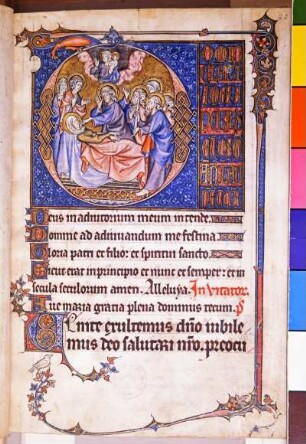 Deus in adiutorium meum intende.
Domine ad adiuuandum me festina
Gloria patri et filio: et spiritui sancto.
Sicut erat in principio et nunc et semper: et in
secula seculorum amen. Alleluya. Inuitator.
Aue maria gratia plena dominus tecum. p̄
Uenite exultemus dño iubile
mus deo salutari nro. preocu